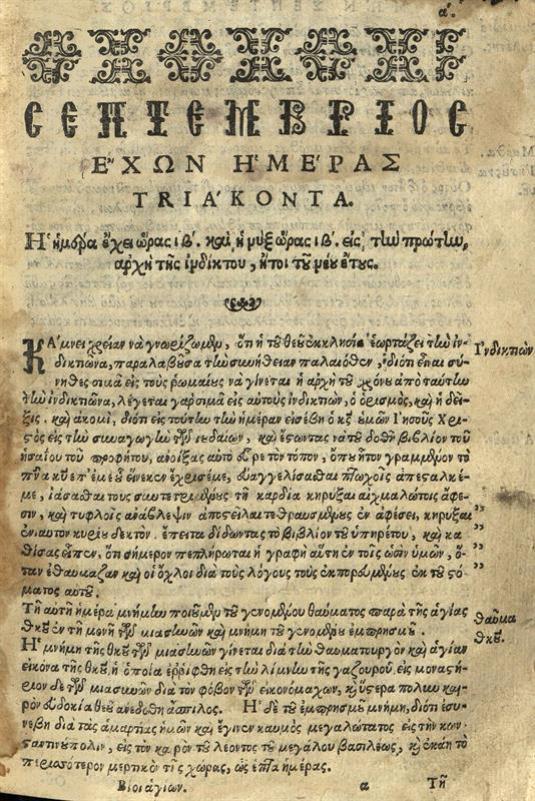 α.
ϹΕΠΤΕΜΒΡΙΟϹ
ΕʼΧΩΝ ΗʽΜΕΡΑΣ
TRIAʹKONTA.
Ηʽ ἡμέρα ἔχει ὥρας ιβʹ. καὶ ἡ νὺξ ὥρας ιβʹ. εἰς τὴν πρώτην,
ἀρχὴ τῆς ἰνδίκτου, ἤτοι τοῦ νέου ἔτους.
ΚΑʹμνει χρείαν νὰ γνωρίζωμεν, ὅτι ἡ τοῦ θεοῦ ἐκκλησία ἑορτάζει τὴν ἰν-
Ι᾿νδικτιών
δικτιῶνα, παραλαβοῦσα τὴν συνήθειαν παλαιόθεν, διότι εἶναι σύ-
νηθες εἰς τοὺς ῥωμαίους νὰ γίνεται ἡ ἀρχὴ τοῦ χρόνου ἀπὸ ταύτην
τὴν ἰνδικτιῶνα, λέγεται εἰς αὐτοὺς ἰνδικτιὼν, ὁ ὁρισμὸς, καὶ ἡ δεῖ-
ξις. καὶ ἀκομὶ, διότι εἰς τούτην τὴν ἡμέραν εἰσέβη ὁ κς ἡμῶν Ι᾿ησοῦς Χρι-
στὸς εἰς τὴν συναγωγὴν τῶν ἰουδαίων, καὶ ἔστωντας νὰ τοῦ δοθῆ βιβλίον τοῦ
ἠσαΐου τοῦ προφήτου, ἀνοίξας αὐτὸ εὗρε τὸν τόπον, ὁποῦ ἦτον γραμμένον τὸ
πνα κυ ἐπ' ἐμὲ οὗ ἕνεκεν ἔχρισέ με, εὐαγγελίσασθαι πτωχοῖς ἀπέσταλκέ
με, ἰάσασθαι τοὺς συντετριμμένους τῇ καρδία κηρύξαι αἰχμαλώτοις ἄφε-
σιν, καὶ τυφλοῖς ἀνάβλεψιν ἀποστεῖλαι τεθραυσμένους ἐν ἀφέσει, κηρῦξαι ”
ἐνιαυτὸν κυρίου δεκτόν. ἔπειτα δίδωντας τὸ βιβλίον τοῦ ὑπηρέτου, καὶ κα ”
θίσας εἶπεν, ὅτι σήμερον πεπλήρωται ἡ γραφὴ αὕτη ἐν τοῖς ὠσὶν ὑμῶν, ὅ- ”
ταν ἐθαύμαζαν καὶ οἱ ὄχλοι διὰ τοὺς λόγους τοὺς ἐκπορευομένους ἐκ τοῦ στό- ”
ματος αὐτοῦ.
Τῆ αὐτῆ ἡμέρα μνήμην ποιοῦμεν τοῦ γενομένου θαύματος παρὰ τῆς ἁγίας
θαῦμα
θκου ἐν τῆ μονῆ τῶν μιασηνῶν καὶ μνήμη τοῦ γενομένου ἐμπρησμοῦ.
θκου.
Ηʽ μνήμη τῆς θκου τῶν μιασηνῶν γίνεται διὰ τὴν θαυματουργὸν καὶ ἁγίαν
εἰκόνα τῆς θκου ἡ ὁποία ἐρρίφθη εἰς τὴν λίμνην τῆς γαζουροῦ, εἰς μοναστή-
ριον δὲ τῶν μιασηνῶν διὰ τὸν φόβον τῶν εἰκονομάχων, καὶ ὕστερα πολὺν και-
ρὸν εὐδοκία θεοῦ ἀνεδόθη ἄσπιλος. Ηʽ δὲ τοῦ ἐμπρησμοῦ μνήμη, διότι ἐσυ-
νέβη διὰ τὰς ἁμαρτίας ἡμῶν καὶ ἔγινεν καυμὸς μεγαλώτατος εἰς τὴν κων-
σταντινούπολιν, εἰς τὸν καιρὸν τοῦ λέοντος τοῦ μεγάλου βασιλέως, καὶ ἐκάη τὸ
περισσότερον μερτικὸν τῆς χώρας, ὡς ἑπτὰ ἡμέρας.
Βίοι ἁγίων. α Τῆ